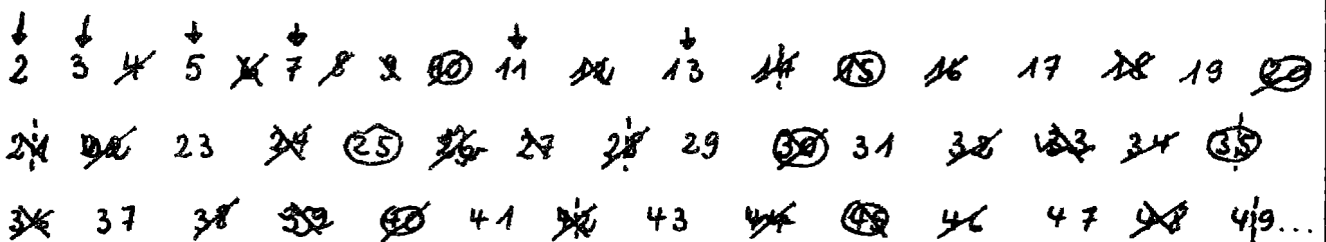 2 3 4 5 6 7 8 9 10 11 12 13 14 15 16 17 18 19 20
21 22 23 24 25 26 27 28 29 30 31 32 33 34 35
36 37 38 39 40 41 42 43 44 45 46 47 48 49...